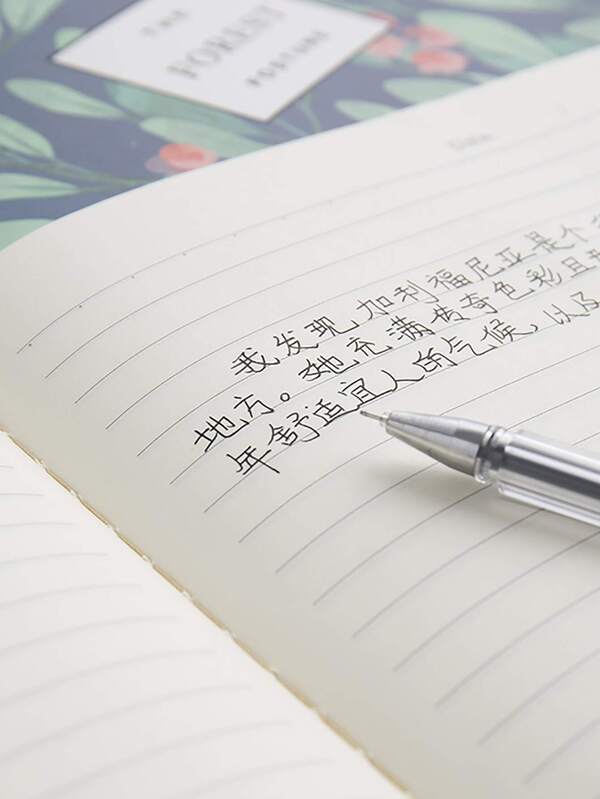 THE
FOREST
POSTURE
Date
我发现,加利福尼亚是个
地方。她充满传奇色彩且
年舒适宜人的气候,以及